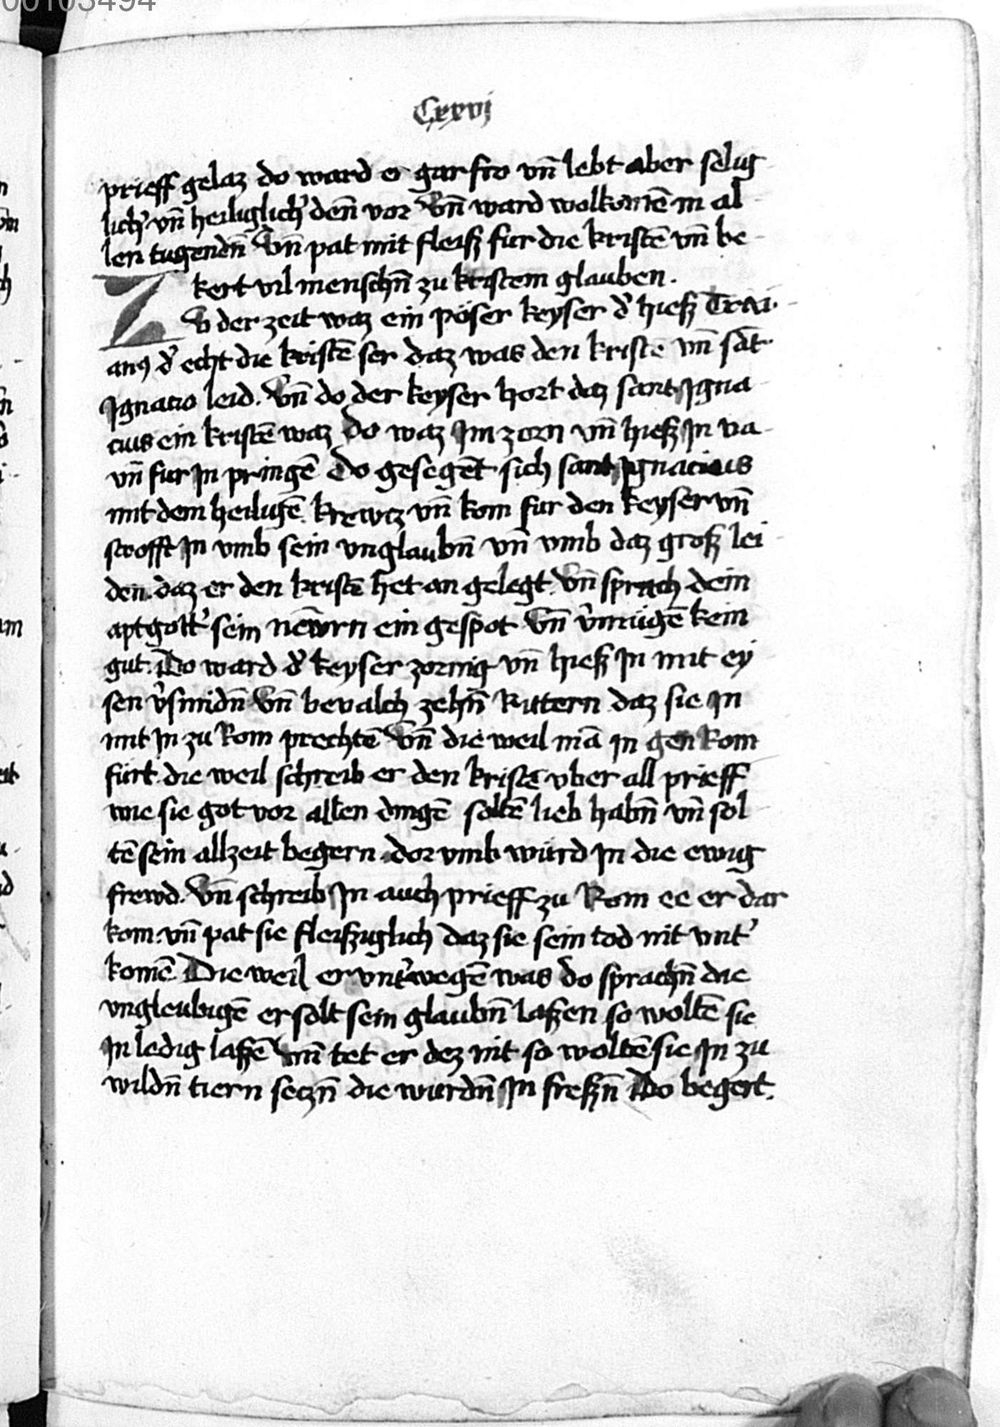 00103494
Cxxvj
prieff gelaz do ward er gar fro vn̄ lebt aber selig
lich' vn̄ heiliglich' den̄ vor Vn̄ ward wolkomē in al
len tugendn̄ Vn̄ pat mit fleisz fur die kristē vn̄ be
kert vil menschn̄ zu kristem glauben.
ZV der zeit waz ein pöser keyser d' hiesz Trai
anꝯ d' echt die kristē ser daz was den kristē vn̄ sāt
Ignatio leid. Vn̄ do der keyser hort daz sant Igna
cius ein kristē waz do waz Im zorn vn̄ hiesz In va
vn̄ fur In pringē Do gesegēt sich sant Ignacius
mit dem heiligē krewcz vn̄ kom fur den keyser vn̄
strofft In vmb sein vnglaubn̄ vn̄ vmb daz grosz lei
den. daz er den kristē het an gelegt. Vn̄ sprach dein
aptgött' sein newrn ein gespot Vn̄ v'mügē kein
gut. Do ward d' keyser zornig vn̄ hiesz In mit ey
sen v'smidn̄ Vn̄ bevalch zehn̄ Rittern daz sie In
mit In zu Rom prechtē Vn̄ die weil mā in gen Rom
fürt. die weil schreib er den kristē vber all prieff
wie sie got vor allen dingē soltē lieb habn̄ vn̄ sol
tē sein allzeit begern. dor vmb würd In die ewig
frewd. Vn̄ schreib In auch prieff zu Rom ee er dar
kom. vn̄ pat sie fleiszziglich daz sie sein tod nit vnt'
komē. Die weil er vnt'wegē was do sprachn̄ die
vngleubigē er solt sein glaubn̄ laszen so woltē sie
In ledig laszē vn̄ tet er dez nit so woltē sie In zu
wildn̄ tiern seczn̄ die wurdn̄ In freszn̄ Do begert